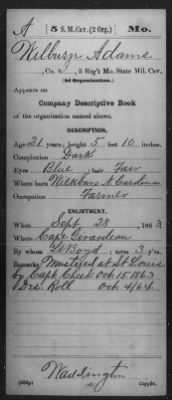 A | 5 S.M. Cav. (2 Org.) | Mo.
Wilburn Adams
, Co. , 5 Reg't Mo. State Mil. Cav.
(2d Organization.)
Appears on
Company Descriptive Book
of the organization named above.
DESCRIPTION.
Age 21 years; height 5 feet 10 inches.
Complexion Dark
Eyes Blue; hair Fair
Where born Wilkbars N. Carolina
Occupation Farmer
ENLISTMENT.
When Sept. 28, 1863
Where Cape Girardeau
By whom Boyd; term 3 y'rs.
Remarks Mustered at St Louis
by Capt Oct 15 1863
Dis. Roll Oct 4/64
Waddington
Copyist.